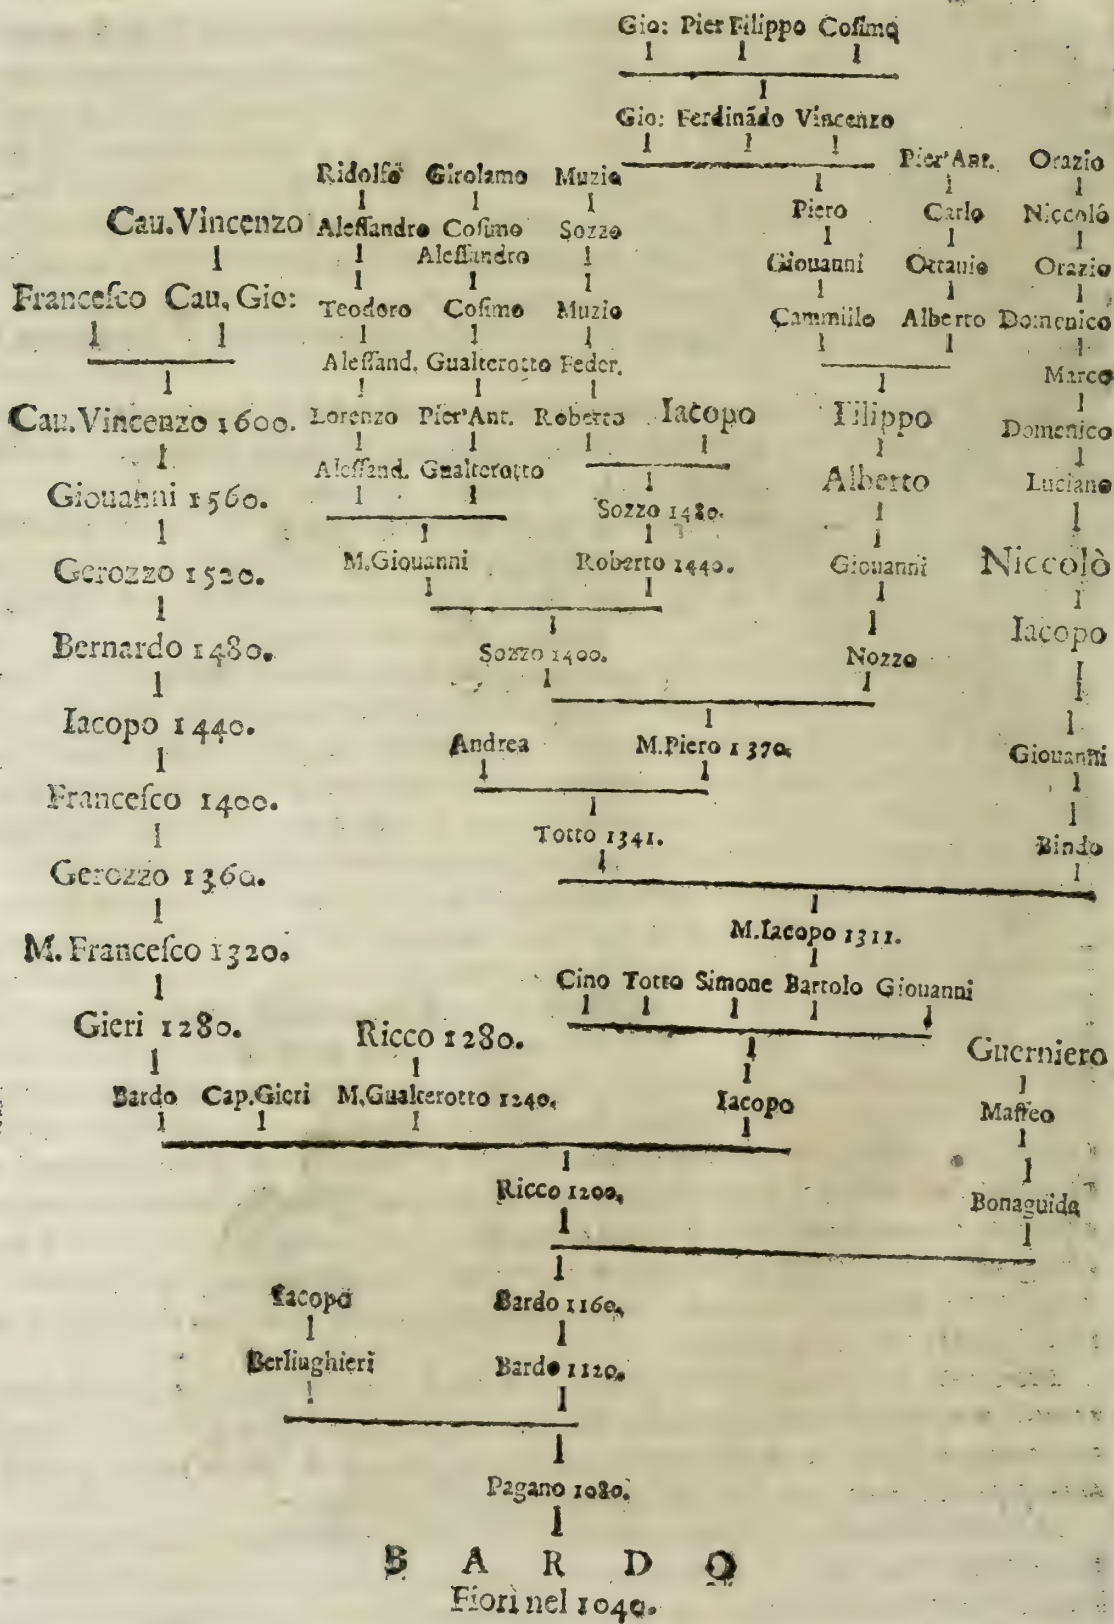 Gio: Pier Filippo Cosimo
Gio: Ferdinãdo Vincenzo
Ridolfo Girolamo Muzio Pier'Ant. Orazio
Cau.Vincenzo Alessandro Cosimo Sozzo Piero Carlo Niccolò
Alessandro Giouanni Ottauio Orazio
Francesco Cau. Gio: Teodoro Cosimo Muzio Cammillo Alberto Domenico
Alessand. Gualterotto Feder. Marco
Cau.Vincenzo 1600. Lorenzo Pier'Ant. Roberto Iacopo Filippo Domenico
Alessand. Gualterotto Alberto Luciano
Giouanni 1560. Sozzo 1480.
Gerozzo 1520. M.Giouanni Roberto 1440. Giouanni Niccolò
Bernardo 1480. Sozzo 1400. Nozzo Iacopo
Iacopo 1440. Andrea M.Piero 1370. Giouanni
Francesco 1400.
Totto 1341. Bindo
Gerozzo 1360.
M. Francesco 1320. M.Iacopo 1311.
Cino Totto Simone Bartolo Giouanni
Gieri 1280. Ricco 1280. Guerniero
Bardo Cap.Gieri M.Gualterotto 1240. Iacopo Maffeo
Ricco 1200. Bonaguida
Iacopo Bardo 1160.
Berlinghieri Bardo 1120.
Pagano 1080.
B A R D O
Fiorì nel 1040.